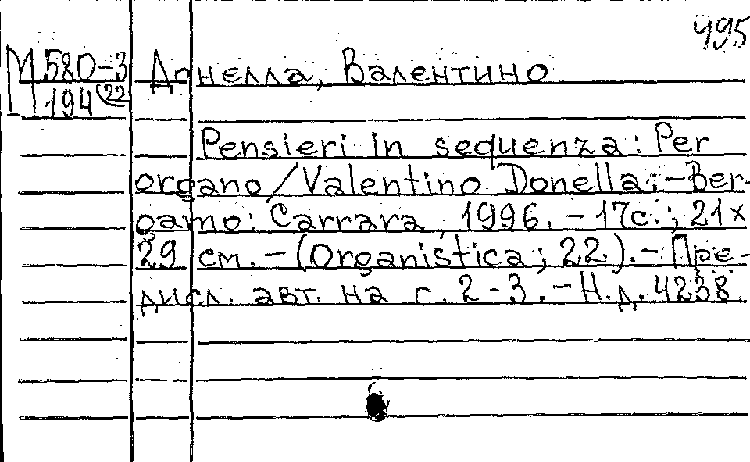 495
М 580-3 Донелла, Валентино
194 22
Pensieri in sequenza: Per
organo/Valentino Donella. - Ber-
gamo: Carrara, 1996. - 17с.; 21х
29 см. - (Organistica; 22). - Пре-
дисл. авт. на с. 2-3. - Н.д. 4238